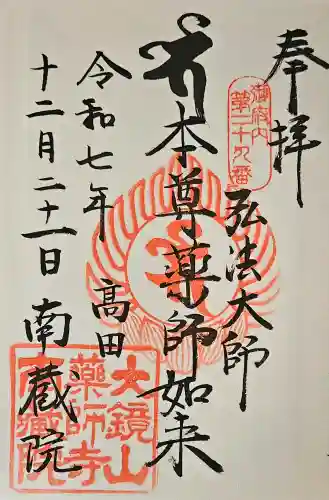 奉拝
御府内
第二十九番
弘法大師
本尊薬師如来
令和七年
十二月二十一日
高田
南蔵院
大鏡山
薬師寺
南蔵院